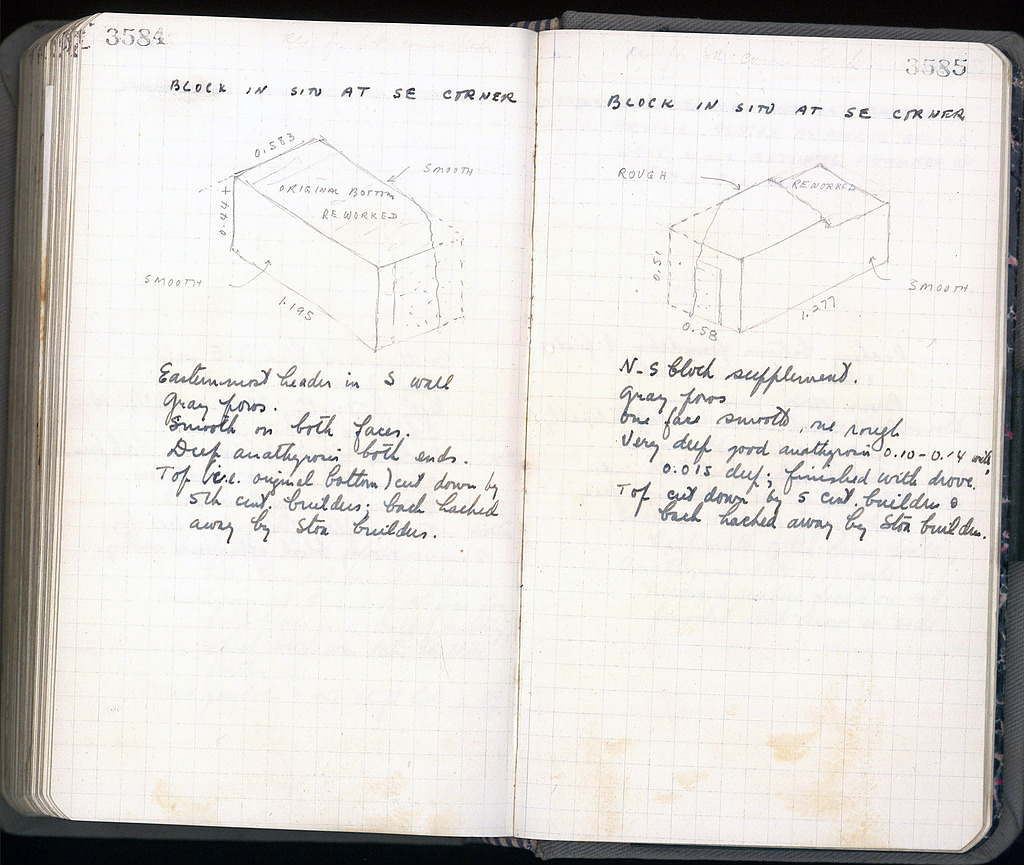 3584
BLOCK IN SITU AT SE CORNER
0.583
SMOOTH
ORIGINAL BOTTOM
REWORKED
0.44+
SMOOTH
1.195
Easternmost header in S wall
Gray poros.
Smooth on both faces.
Deep anathyrosis both ends.
Top (i.e. original bottom) cut down by
5th cent. builders; back hacked
away by Stoa builders.
3585
BLOCK IN SITU AT SE CORNER
ROUGH
REWORKED
0.51
SMOOTH
1.277
0.58
N-S block supplement.
Gray poros
One face smooth, one rough
Very deep good anathyrosis 0.10-0.14 wide
0.015 deep; finished with drove.
Top cut down by 5 cent. builders
back hacked away by Stoa builders.